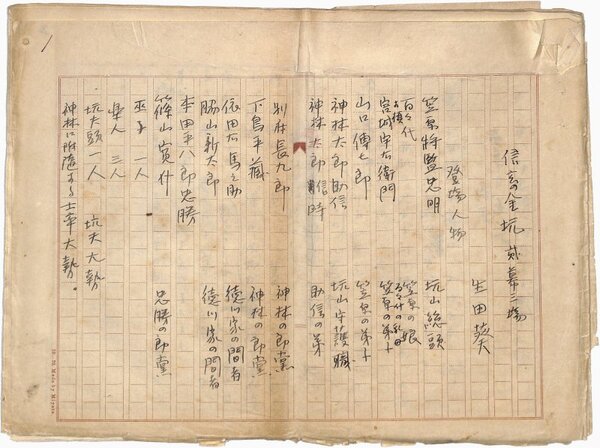 信玄の金坑 弐幕三場
生田葵
登場人物
笠原将監忠明 坑山総頭
百々代 笠原の娘
宮城宇右衛門 笠原の弟子
山口傳七郎 笠原の弟子
神林太郎助信 坑山守護職
神林太郎信時 助信の弟
別府長九郎 神林の郎党
下島平蔵 神林の郎党
依田右馬之助 徳川家の間者
脇山新太郎 徳川家の間者
本田平八郎忠勝
篠山寅什 忠勝の郎党
巫子 一人
一人 三人
坑夫頭 一人 坑夫大勢
神林に附随する士卒大勢。
1